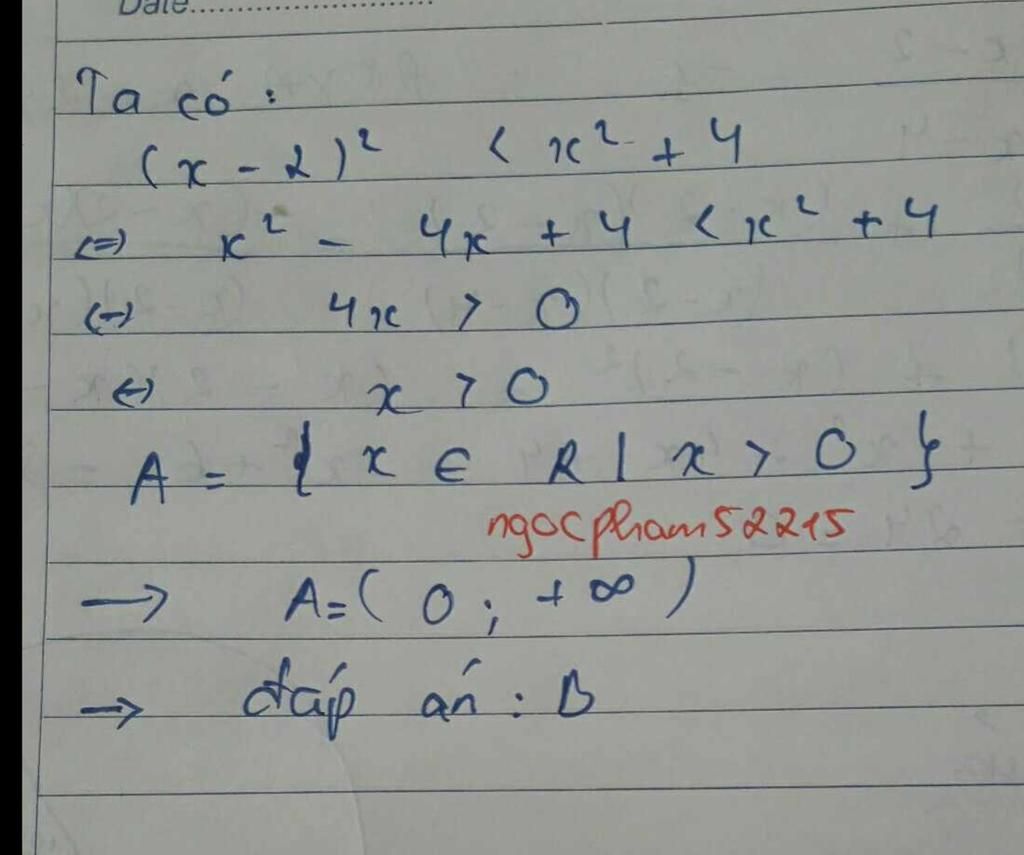 Date..............................
Ta có :
(x - 2)² < x² + 4
<=> x² - 4x + 4 < x² + 4
<-> 4x > 0
<-> x > 0
A = { x ∈ R | x > 0 }
ngocpham52215
→ A=( 0 ; + ∞ )
→ đáp án : B